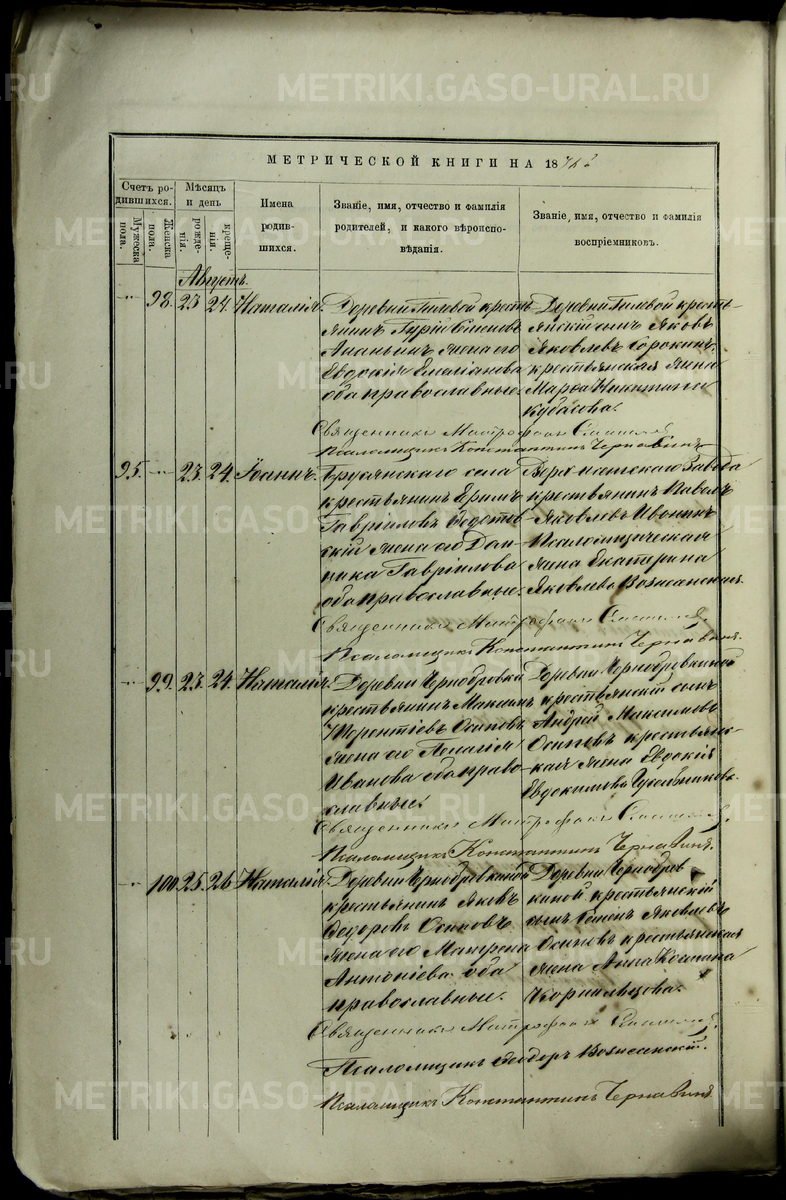 METRIKI.GASO-URAL.RU
МЕТРИЧЕСКОЙ КНИГИ НА 18
Счетъ родившихся.
Мужеска пола.
Женска пола.
Мѣсяцъ и день
рожденія.
крещенія.
Имена родившихся.
Званіе, имя, отчество и фамилія родителей, и какого вѣроисповѣданія.
Званіе, имя, отчество и фамилія воспріемниковъ.
Августъ.
98. 23 24. Наталія.
Деревни крестьянинъ Гурій Семеновъ
Ананьинъ жена его
Евдокія Емеліанова
оба православные.
Деревни крестьянскій сынъ Яковъ
Яковлевъ Сорокинъ
крестьянская жена
Марѳа Никитина
Кубасова.
Священникъ Митрофанъ
Псаломщикъ Константинъ Чернавинъ
95. 23. 24. Іоаннъ.
Бруснянскаго села
крестьянинъ
Гавріиловъ
жена его Домника Гавріилова
оба православные.
Завода
крестьянинъ Павелъ
Яковлевъ Ивонинъ
Псаломщическая
жена Екатерина
Яковлева Вознесенская.
Священникъ Митрофанъ
Псаломщикъ Константинъ Чернавинъ.
99. 23. 24. Наталія.
Деревни
крестьянинъ Максимъ
Терентіевъ Осиповъ
жена его Пелагія
Иванова оба православные.
Деревни
крестьянскій сынъ
Андрей Максимовъ
Осиповъ крестьянская жена Евдокія
Евдокимова
Священникъ Митрофанъ
Псаломщикъ Константинъ Чернавинъ.
100 25. 26 Наталія.
Деревни
крестьянинъ Яковъ
Ѳедоровъ Осиповъ.
жена его Матрена
Антоніева оба
православные.
Деревни
крестьянскій
сынъ Семенъ Яковлевъ
Осиповъ крестьянская
жена Анна
Священникъ Митрофанъ
Псаломщикъ Ѳеодоръ Вознесенскій.
Псаломщикъ Константинъ Чернавинъ.